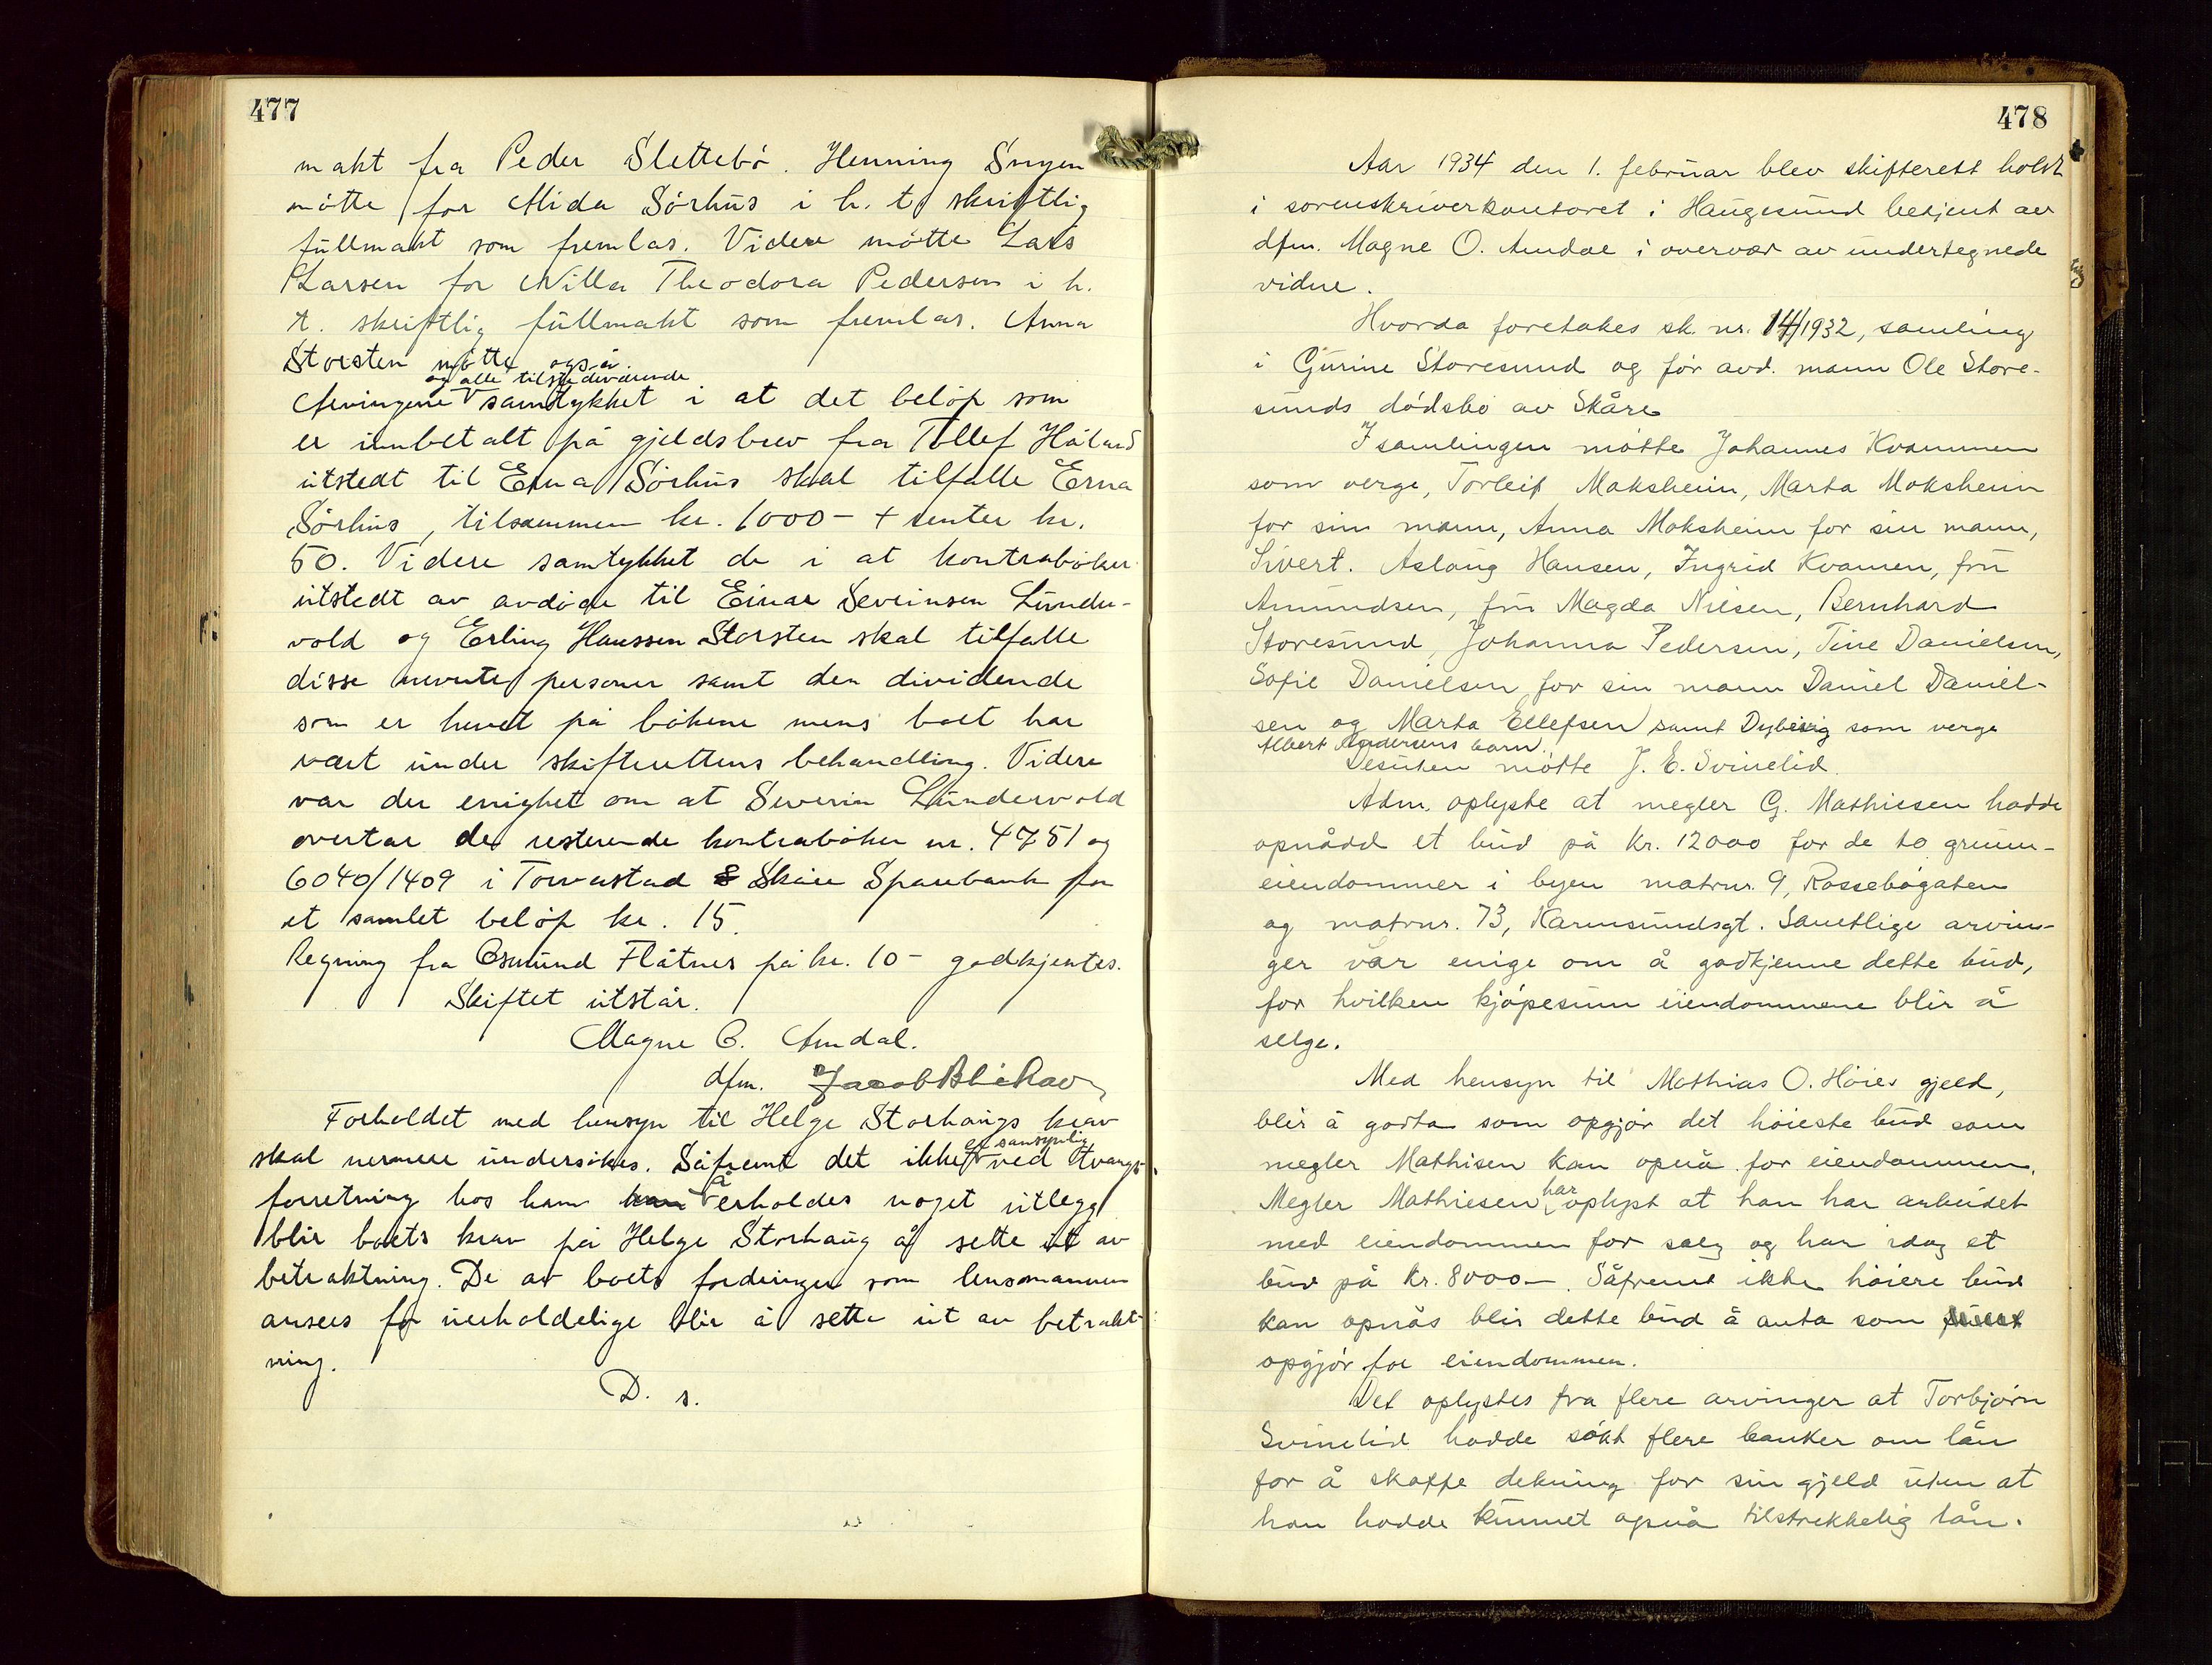 477
makt fra Peder Slettebö. Henning Snyen
mötte for Alida Sörhus i h. t. skriftlig
fullmakt som fremlas. Videre mötte Lars
Larsen for Nilla Theodora Pedersen i h.
t. skriftlig fullmakt som fremlas. Anna
Storsten mötte også.
og alle tilstedeværende
Arvingene samtykket i at det belöp som
er innbetalt på gjeldsbrev fra Tollef Håland
utstedt til Erna Sörhus skal tilfalle Erna
Sörhus, tilsammen kr. 1000- + renter kr.
50. Videre samtykket de i at kontraböker
utstedt av avdöde til Einar Severinsen Lunde-
vold og Erling Hanssen Storsten skal tilfalle
disse nevnte personer samt den dividende
som er hevet på bökene mens boet har
vært under skifterettens behandling. Videre
var der enighet om at Severin Lundervold
overtar de resterende kontraböker nr. 4751 og
6040/1409 i Torvastad & Skåre Sparebank for
et samlet belöp kr. 15.
Regning fra Osmund Flåtnes på kr. 10- godkjentes.
Skiftet utstår.
Magne O. Amdal.
dfm. Jacob
Forholdet med hensyn til Helge Storhaugs krav
skal nermere undersökes. Såfremt det ikke er sansynlig ved tvangs-
forretning hos ham å erholdes noget utlegg
blir boets krav på Helge Storhaug å sette ut av
betraktning. De av boets fordringer som lensmannen
ansees for uerholdelige blir å sette ut av betrakt-
ning.
D. s.
478
Aar 1934 den 1. februar blev skifterett holdt
i sorenskriverkontoret i Haugesund betjent av
dfm. Magne O. Amdal i overvær av undertegnede
vidne.
Hvorda foretakes sk. nr. 14/1932, samling
i Gurine Storesund og før avd. mann Ole Store-
sunds dödsbo av Skåre
I samlingen mötte Johannes Kvammen
som verge, Torleif Moksheim, Marta Moksheim
for sin mann, Anna Moksheim for sin mann,
Sivert. Aslaug Hansen, Ingrid Kvamen, fru
Amundsen, fru Magda Nilsen, Bernhard
Storesund, Johanna Pedersen, Tine Danielsen,
Sofie Danielsen for sin mann Daniel Daniel-
sen og Marta Ellefsen samt Dybevig som verge
Albert Andersens barn.
Desuten mötte J. E. Svinelid.
Adm. oplyste at megler G. Mathiesen hadde
opnådd et bud på kr. 12000 for de to grunn-
eiendommer i byen matrnr. 9, Rossebøgaten
og matrnr. 73, Karmsundsgt. Samtlige arvin-
ger var enige om å godkjenne dette bud,
for hvilken kjöpesum eiendommene blir å
selge.
Med hensyn til Mathias O. Höies gjeld,
blir å godta som opgjör det höieste bud som
megler Mathisen kan opnå for eiendommen.
Megler Mathiesen har oplyst at han har arbeidet
med eiendommen for salg og har idag et
bud på kr. 8000-. Såfremt ikke höiere bud
kan opnås blir dette bud å anta som
opgjör for eiendommen.
Det oplystes fra flere arvinger at Torbjörn
Svinelid hadde sökt flere banker om lån
for å skaffe dekning for sin gjeld uten at
han hadde kunnet opnå tilstrekkelig lån.